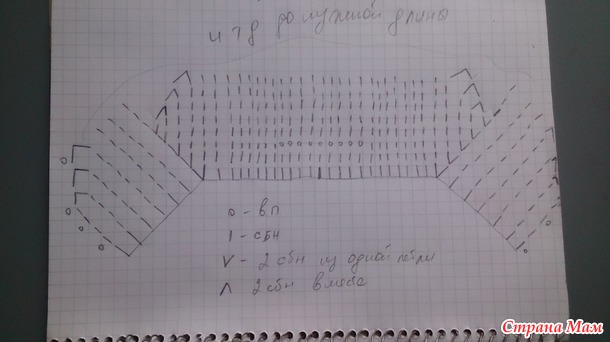 и т д до нужной длины
о - вп
I - сбн
V - 2 сбн из одной петли
Λ 2 сбн вместе
Страна Мам